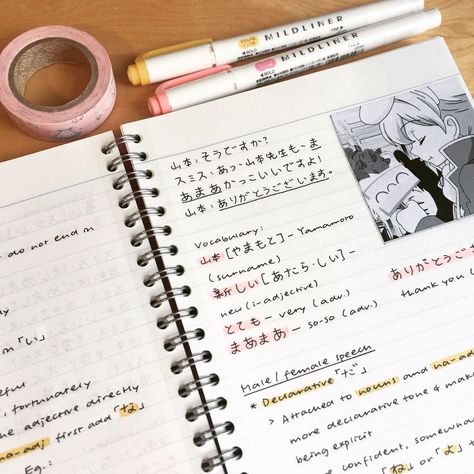 MILDLINER
MILDLINER
do not end in
m 「い」
eful
, fortunately
he adjective directly
na-adj first add 「な」
Eg.:
山本：そうですか？
スミス：あっ、山本先生も、ま
あまあかっこいいですよ！
山本：ありがとうございます。
Vocabulary:
山本［やまもと］– Yamamoto
(surname)
新しい［あたら・しい］–
new (i-adjective)
とても – very (adv.)
まあまあ – so-so (adv.)
ありがとうござ
thank you
Male / female speech
* Declarative 「だ」
> Attached to nouns and na-ad
more declarative tone & mak
being explicit
confident, somewha
「ね」 or 「よ